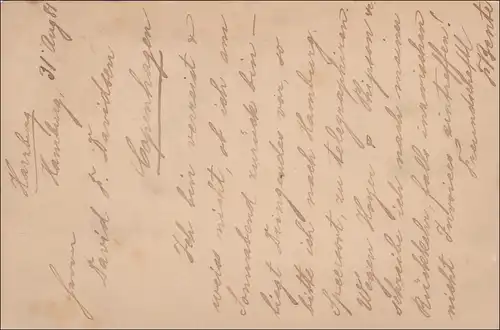 Harburg
Hamburg, 31 Aug 81
Herrn
David S. Davidsen
Copenhagen
Ich bin verreist &
weiss nicht, ob ich am
Sonnabend zurück bin –
liegt Dringendes vor, so
bitte ich nach Hamburg
zu telegraphiren.
Wegen Hoyer &
schreibe ich nach meiner
Rückkehr, falls inzwischen
nicht Invoices eintreffen!